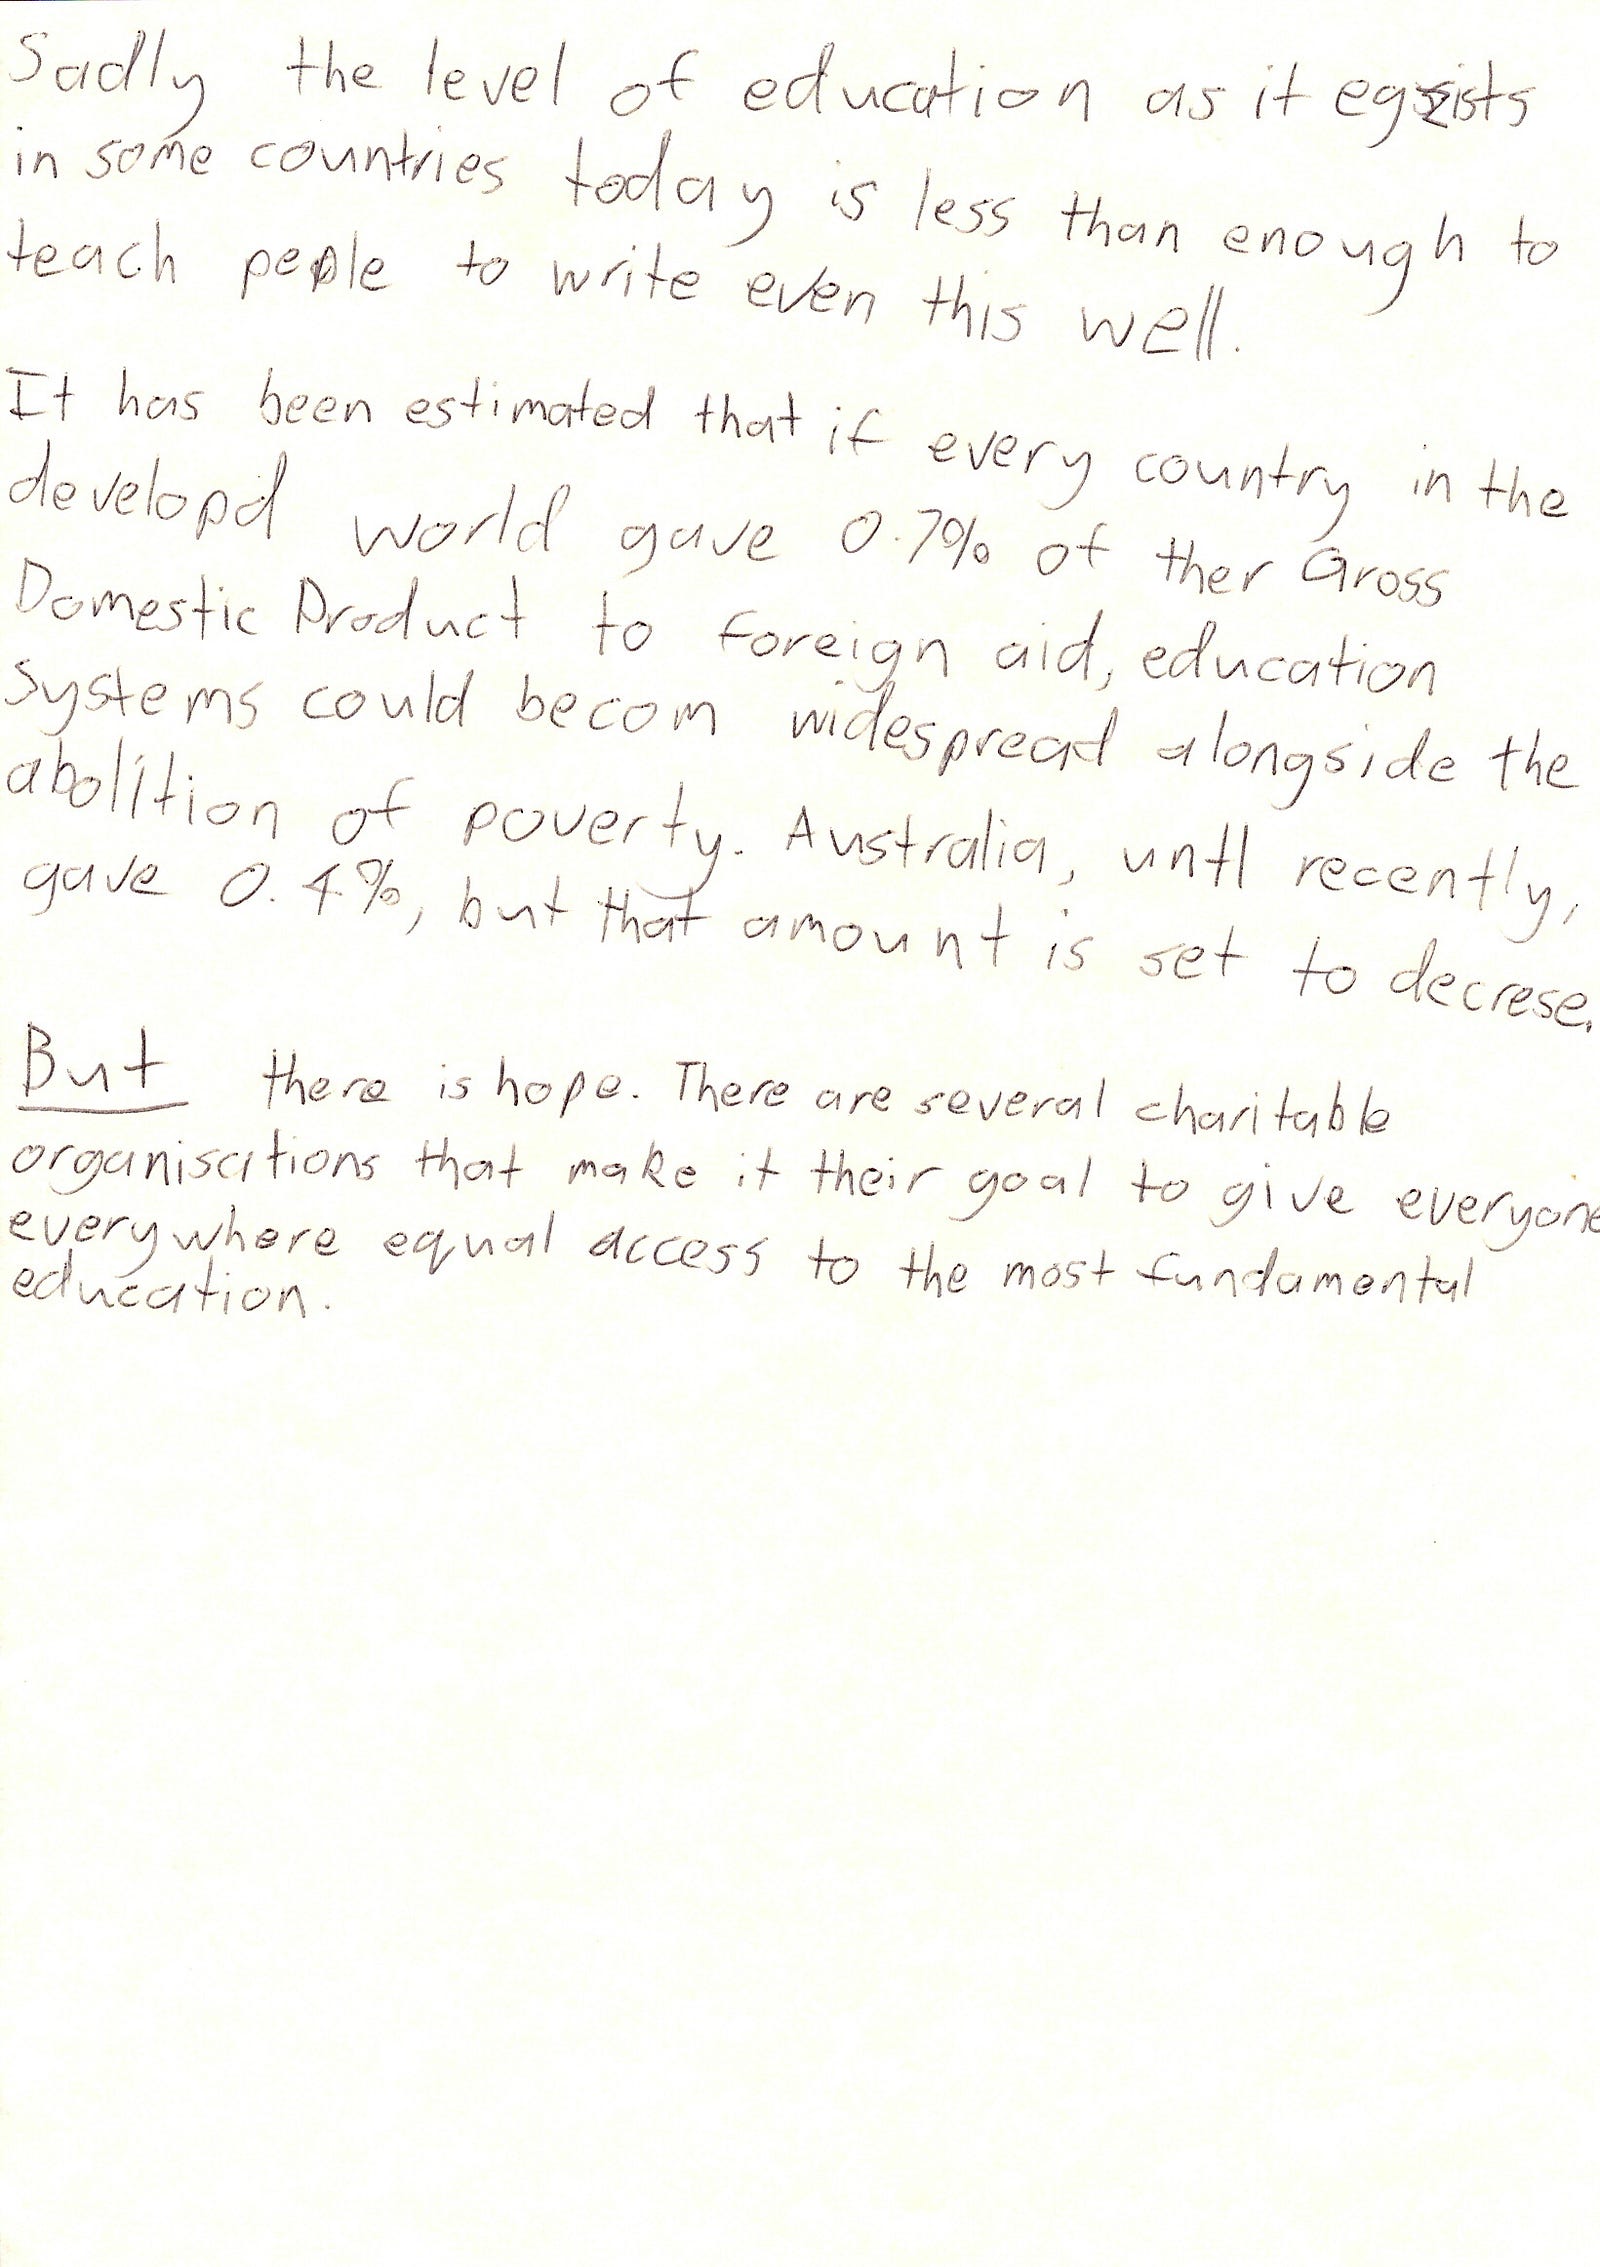 Sadly the level of education as it egsists
in some countries today is less than enough to
teach pepole to write even this well.
It has been estimated that if every country in the
developd world gave 0.7% of ther Gross
Domestic Product to foreign aid, education
systems could becom widespread alongside the
abolition of poverty. Australia, untl recently,
gave 0.4%, but that amount is set to decrese.
But there is hope. There are several charitable
organisations that make it their goal to give everyone
everywhere equal access to the most fundamental
education.